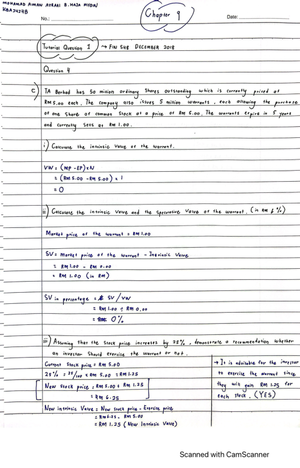 MUHAMAD AIMAN AKRAM B. MAZA MIZAN
KBA2424B
Chapter 9
No.:
Date:
Tutorial Question 1 → FIN 548 DECEMBER 2018
Question 4
c) TA Berhad has 50 million ordinary shares outstanding which is currently priced at
RM 5.00 each. The company also issues 5 million warrants, each allowing the purchase
of one share of common stock at a price of RM 5.00. The warrants expire in 5 years
and currently sells at RM 1.00.
i) Calculate the intrinsic value of the warrant.
VW = (MP - EP) × N
= (RM 5.00 - RM 5.00) × 1
= 0
ii) Calculate the intrinsic value and the speculative value of the warrant. (in RM & %)
Market price of the warrant = RM 1.00
SV = Market price of the warrant - Intrinsic Value
= RM 1.00 - RM 0.00
= RM 1.00 (in RM)
SV in percentage = SV / VW
= RM 1.00 ÷ RM 0.00
= 0%
iii) Assuming that the stock price increases by 25%, demonstrate a recommendation whether
an investor should exercise the warrant or not.
Current stock price = RM 5.00
25% = 25/100 × RM 5.00 = RM 1.25
New stock price = RM 5.00 + RM 1.25
= RM 6.25
New Intrinsic Value = New stock price - Exercise price
= RM 6.25 - RM 5.00
= RM 1.25 (New Intrinsic Value)
→ It is advisable for the investor
to exercise the warrant since
they will gain RM 1.25 for
each stock. (YES)
Scanned with CamScanner